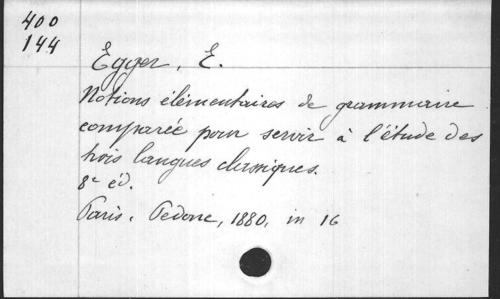 400
144
Egger, E.
Notions élémentaires de grammaire
comparée pour servir à l'étude des
trois langues classiques.
8e éd.
Paris. Pedone, 1880, in 16